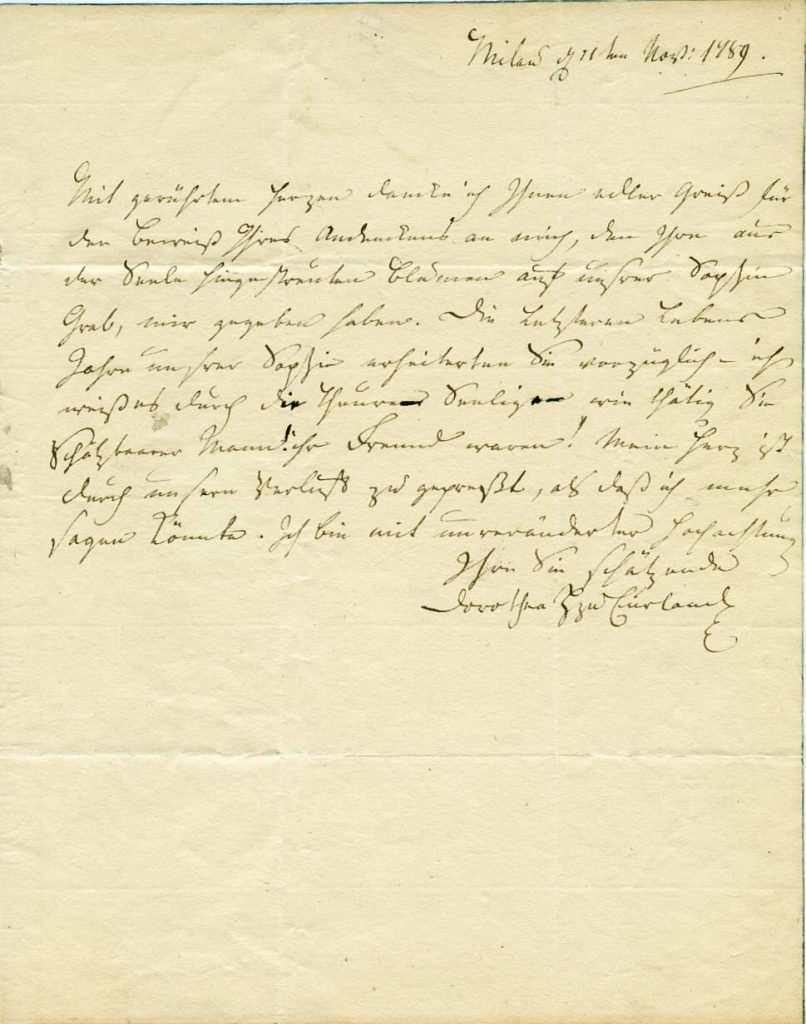 Mitau d 11ten Nov: 1789.
Mit gerührtem Herzen dancke ich Ihnen edler Greiß für
den Beweiß Ihres Andenckens an mich, den Ihre aus
der Seele hingestreuten Blumen auf unsrer Sophie
Grab, mir gegeben haben. Die Letzteren Lebens
Jahre unsrer Sophie erheiterten Sie vorzüglich – ich
weiß es durch die theure Seelige – wie thätig Sie
Schätzbarer Mann! ihr Freund waren! Mein Herz ist
durch unsern Verlust zu gepreßt, als daß ich mehr
sagen könnte. Ich bin mit unveränderter Hochachtung
Ihre Sie schätzende
Dorothea H zu Curland